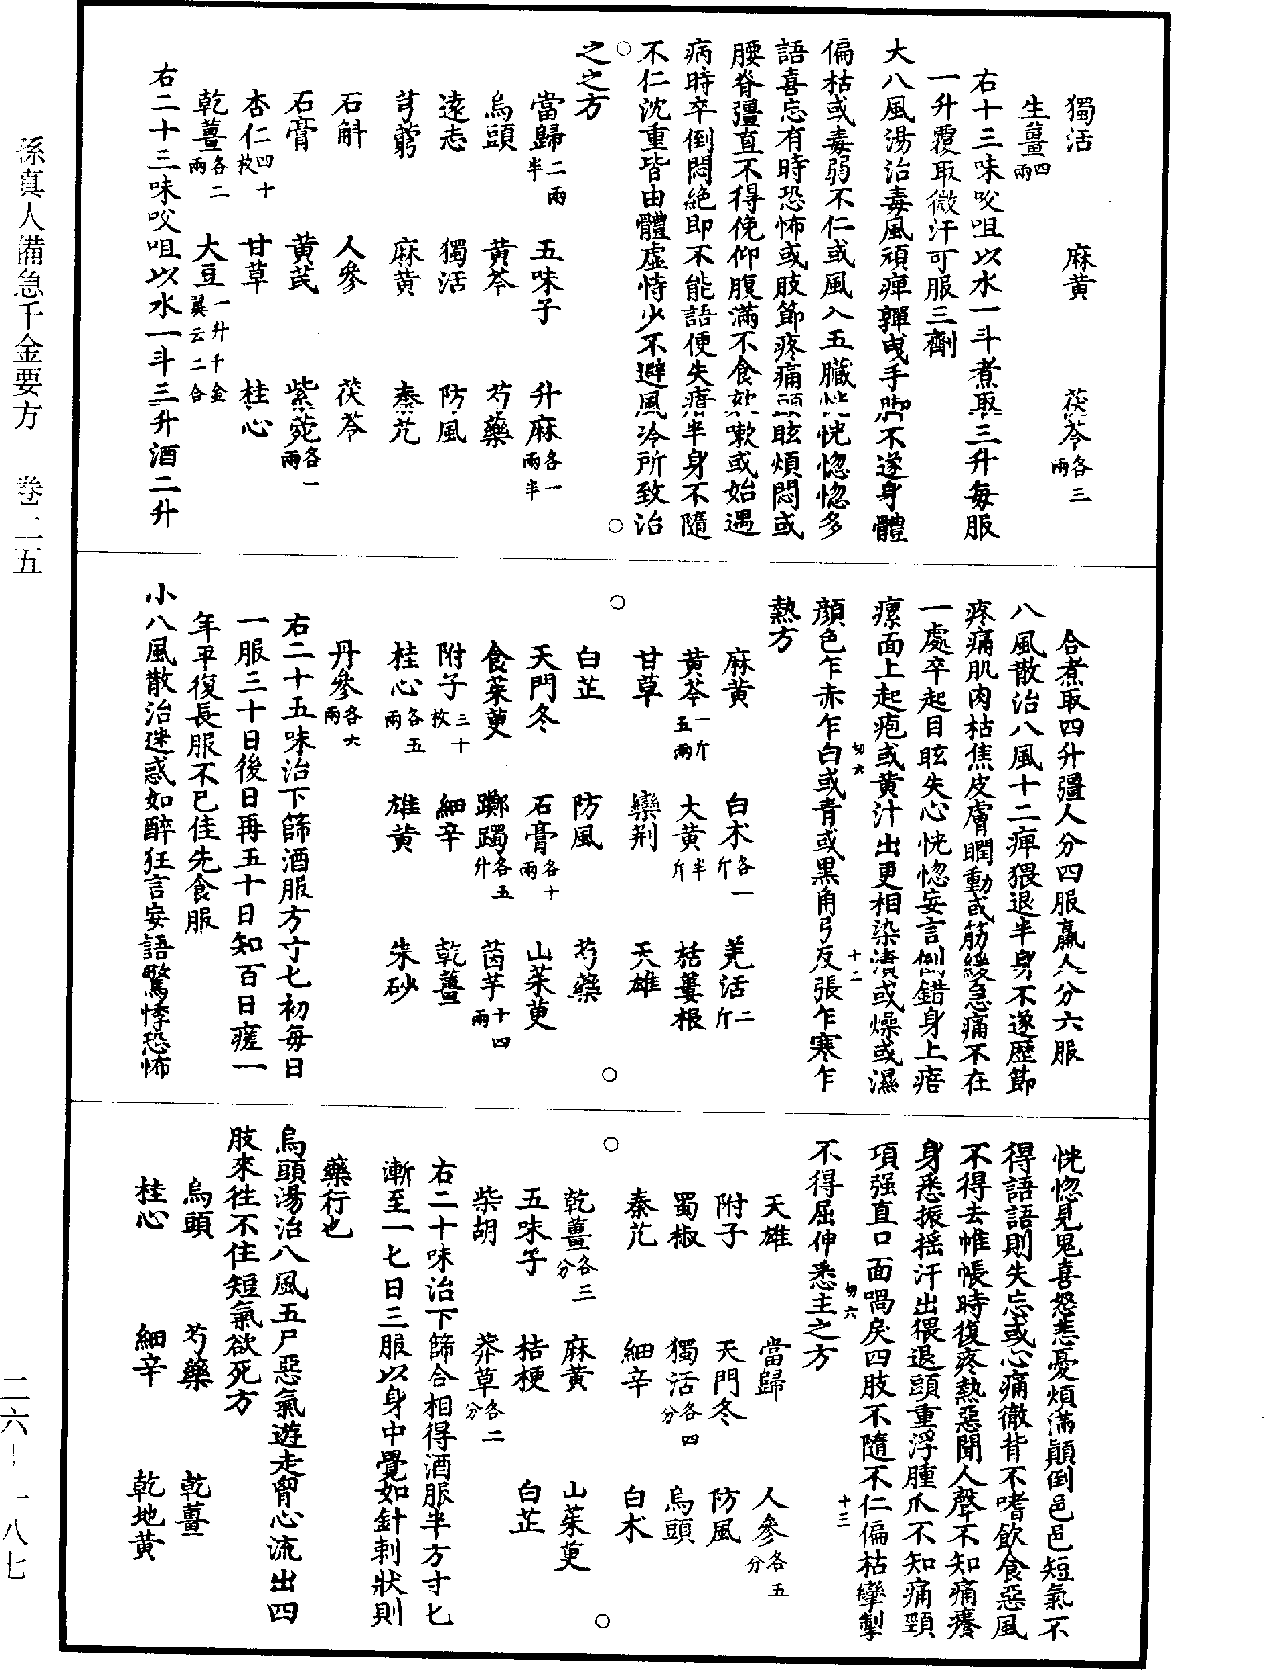 獨活　麻黃　茯苓各三兩
生薑四兩
右十三味㕮咀以水一斗煮取三升每服
一升覆取微汗可服三劑
大八風湯治毒風頑痺嚲曳手脚不遂身體
偏枯或毒弱不仁或風入五臟恍恍惚惚多
語喜忘有時恐怖或肢節疼痛頭眩煩悶或
腰脊彊直不得俛仰腹滿不食欬嗽或始遇
病時卒倒悶絕即不能語便失瘖半身不隨
不仁沈重皆由體虛恃少不避風冷所致治
之之方
當歸二兩半　五味子　升麻各一兩半
烏頭　黃芩　芍藥
遠志　獨活　防風
芎藭　麻黃　秦艽
石斛　人參　茯苓
石膏　黃芪　紫菀各一兩
杏仁四十枚　甘草　桂心
乾薑各二兩　大豆一升千金翼云二合
右二十三味㕮咀以水一斗三升酒二升
合煮取四升彊人分四服羸人分六服
八風散治八風十二痺猥退半身不遂歷節
疼痛肌肉枯焦皮膚瞤動或筋緩急痛不在
一處卒起目眩失心恍惚妄言倒錯身上瘖
瘰面上起疱或黃汁出更相染漬或燥或濕
顏色乍赤乍白或青或黑角弓反張乍寒乍
熱方
麻黃　白朮各一斤　羌活二斤
黃芩一斤五兩　大黃半斤　栝蔞根
甘草　欒荆　天雄
白芷　防風　芍藥
天門冬　石膏各十兩　山茱萸
食茱萸　躑躅各五升　茵芋十四兩
附子三十枚　細辛　乾薑
桂心各五兩　雄黃　朱砂
丹參各六兩
右二十五味治下篩酒服方寸匕初每日
一服三十日後日再五十日知百日瘥一
年平復長服不已佳先食服
小八風散治迷惑如醉狂言妄語驚悸恐怖
恍惚見鬼喜怒悲憂煩滿顛倒邑邑短氣不
得語語則失忘或心痛徹背不嗜飲食惡風
不得去帷帳時復疼熱惡聞人聲不知痛癢
身悉振搖汗出猥退頭重浮腫爪不知痛頸
項强直口面喎戾四肢不隨不仁偏枯攣掣
不得屈伸悉主之方
天雄　當歸　人參各五分
附子　天門冬　防風
蜀椒　獨活各四分　烏頭
秦艽　細辛　白朮
乾薑各三分　麻黃　山茱萸
五味子　桔梗　白芷
柴胡　莽草各二分
右二十味治下篩合相得酒服半方寸匕
漸至一七日三服以身中覺如針刺狀則
藥行也
烏頭湯治八風五尸惡氣遊走胷心流出四
肢來往不住短氣欲死方
烏頭　芍藥　乾薑
桂心　細辛　乾地黃
孫真人備急千金要方　卷二五
二六－一八七